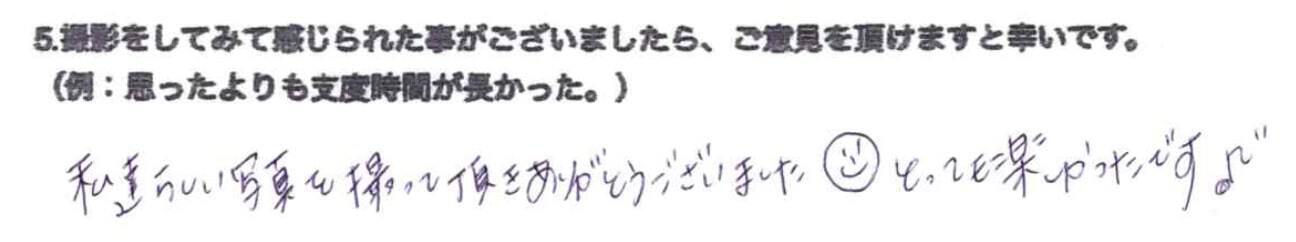 5.撮影をしてみて感じられた事がございましたら、ご意見を頂けますと幸いです。
（例：思ったよりも支度時間が長かった。）
私達らしい写真を撮って頂きありがとうございました☺とっても楽しかったです♪